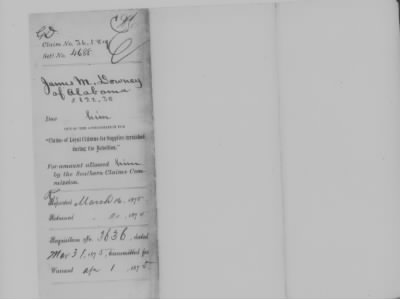 Claim No. 36,184
Set't No. 4688
James M. Downey
of Alabama
$ 122.30
Due him
OUT OF THE APPROPRIATION FOR
"Claims of Loyal Citizens for Supplies furnished
during the Rebellion."
For amount allowed him
by the Southern Claims Com-
mission.
Reported March 16, 1875
Returned 1875
Requisition No. 3636, dated
Mar 31, 1875, transmitted for
Warrant Apr 1, 1875